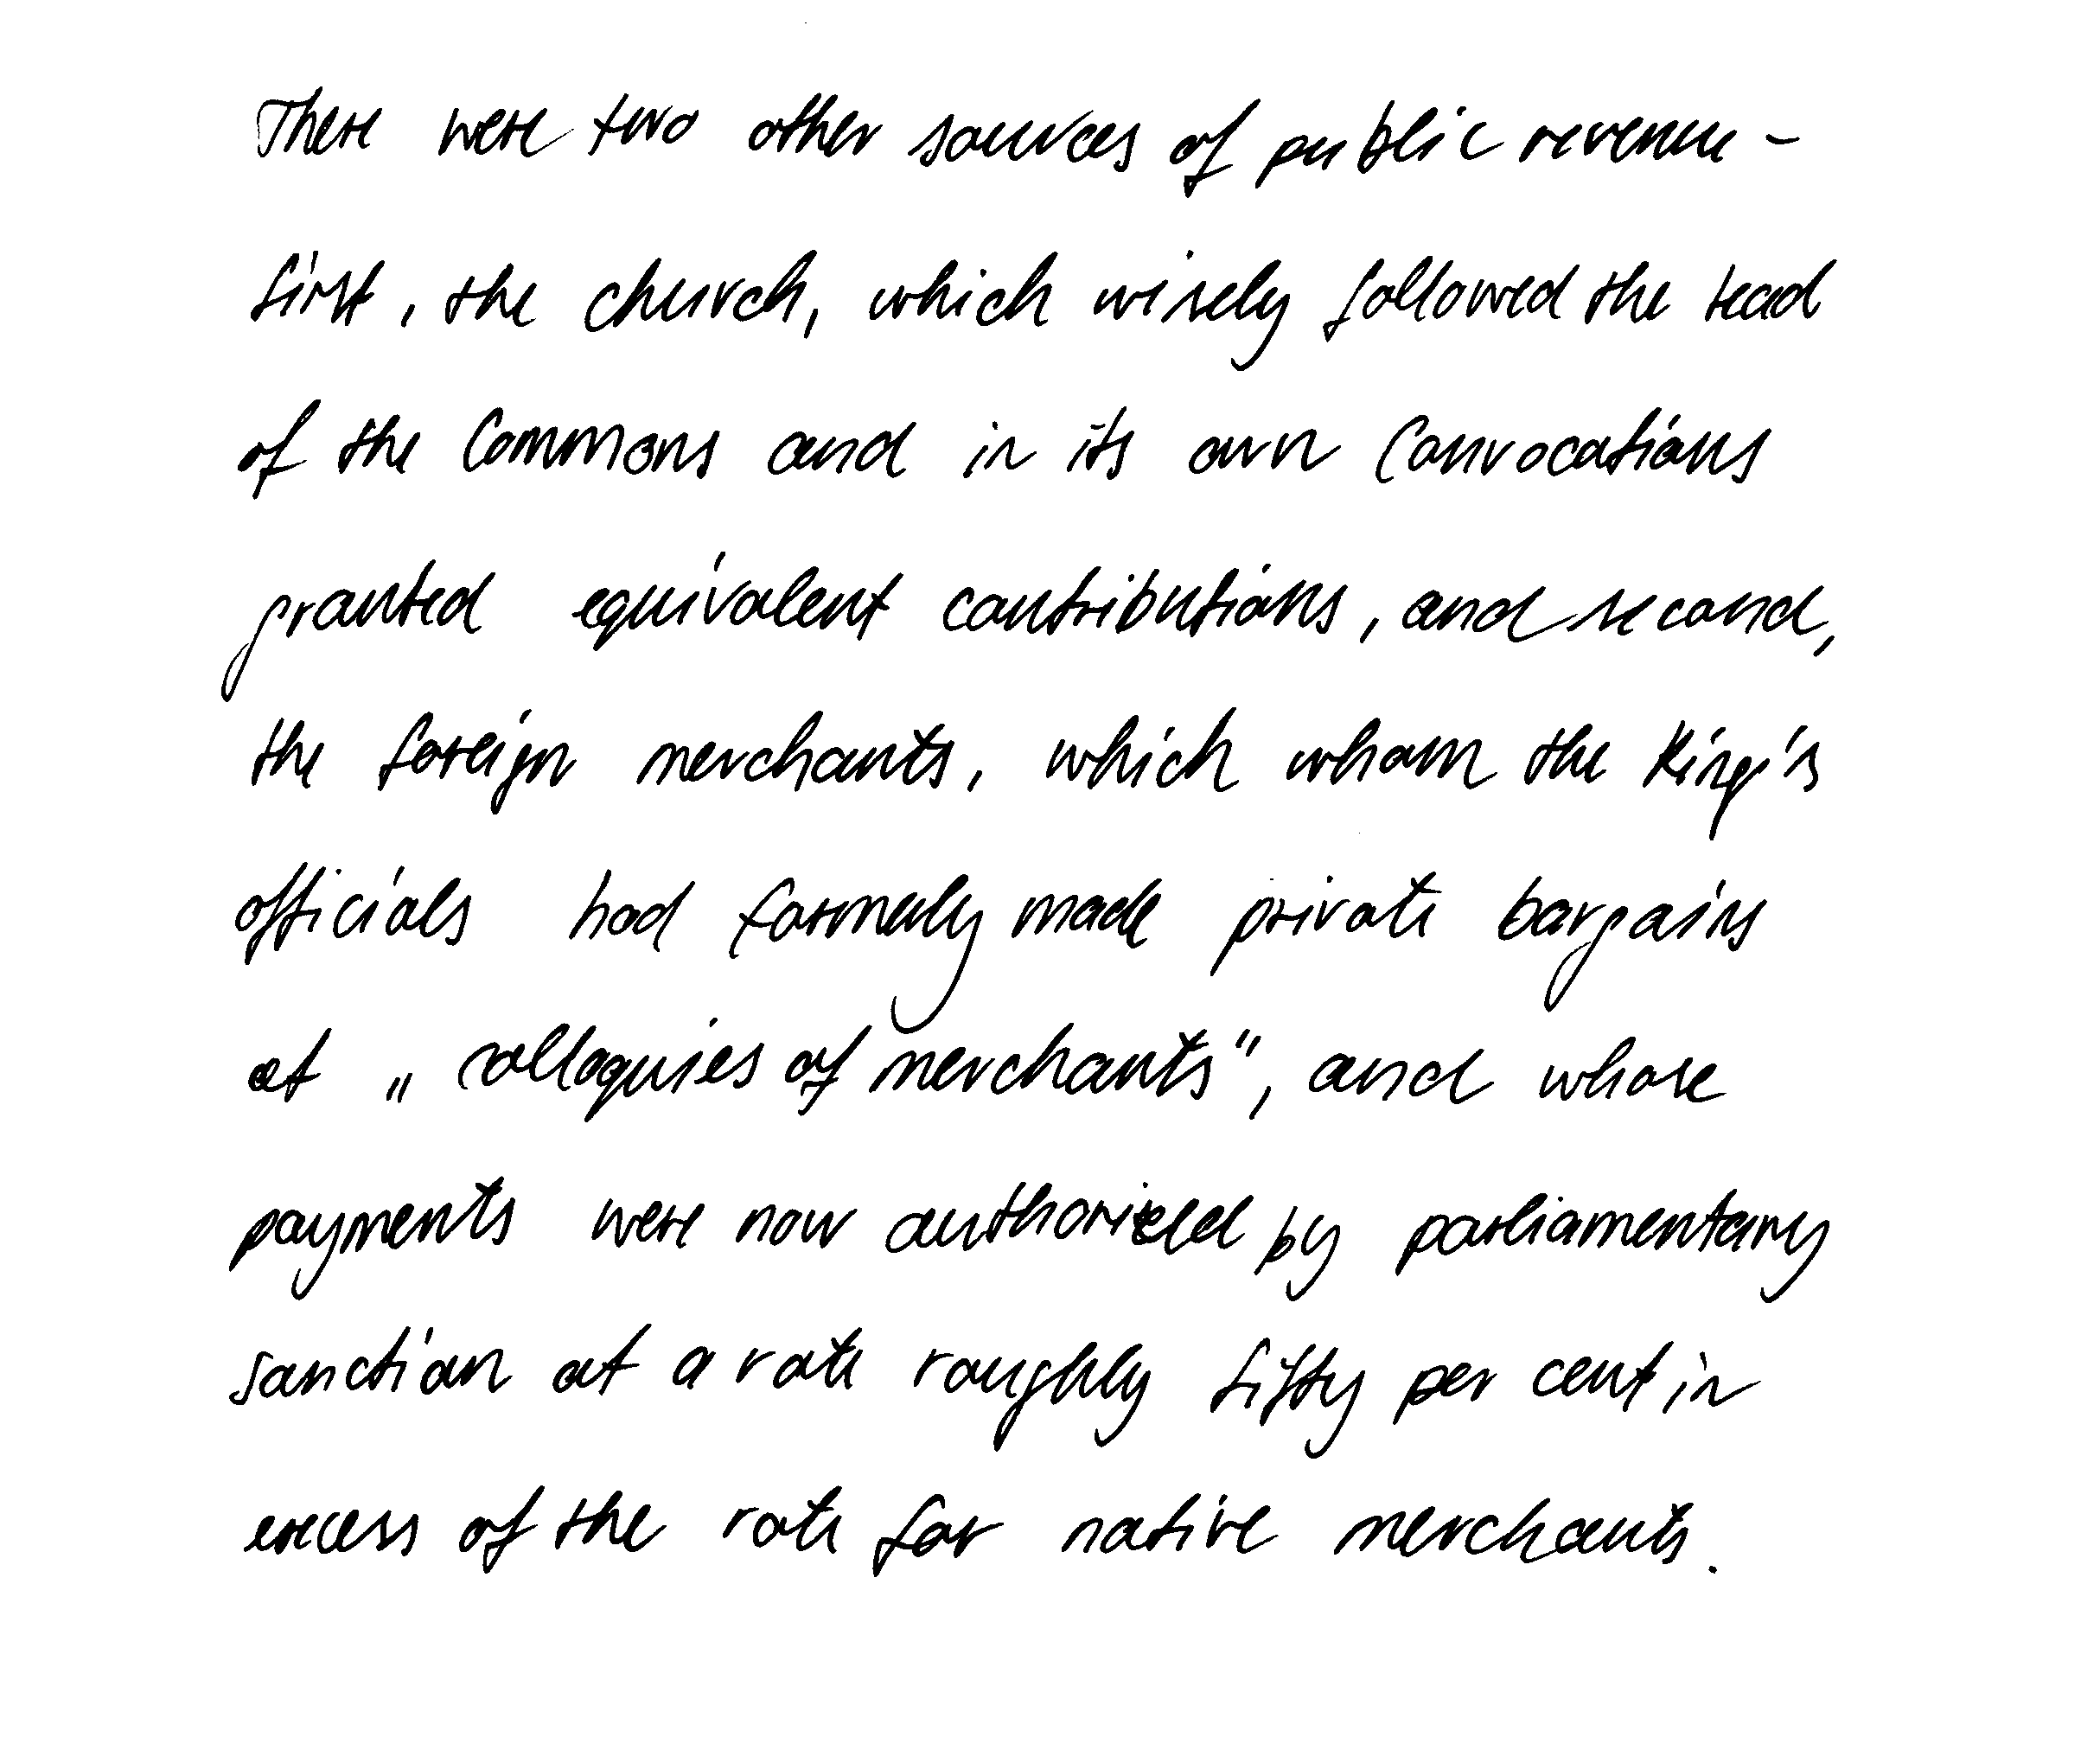 There were two other sources of public revenue -
first, the church, which wisely followed the lead
of the Commons and in its own Convocations
granted equivalent contributions, and second,
the foreign merchants, which whom the King's
officials had formerly made private bargains
at „ colloquies of merchants", and whose
payments were now authorized by parliamentary
sanction at a rate roughly fifty per cent in
excess of the rate for native merchants.